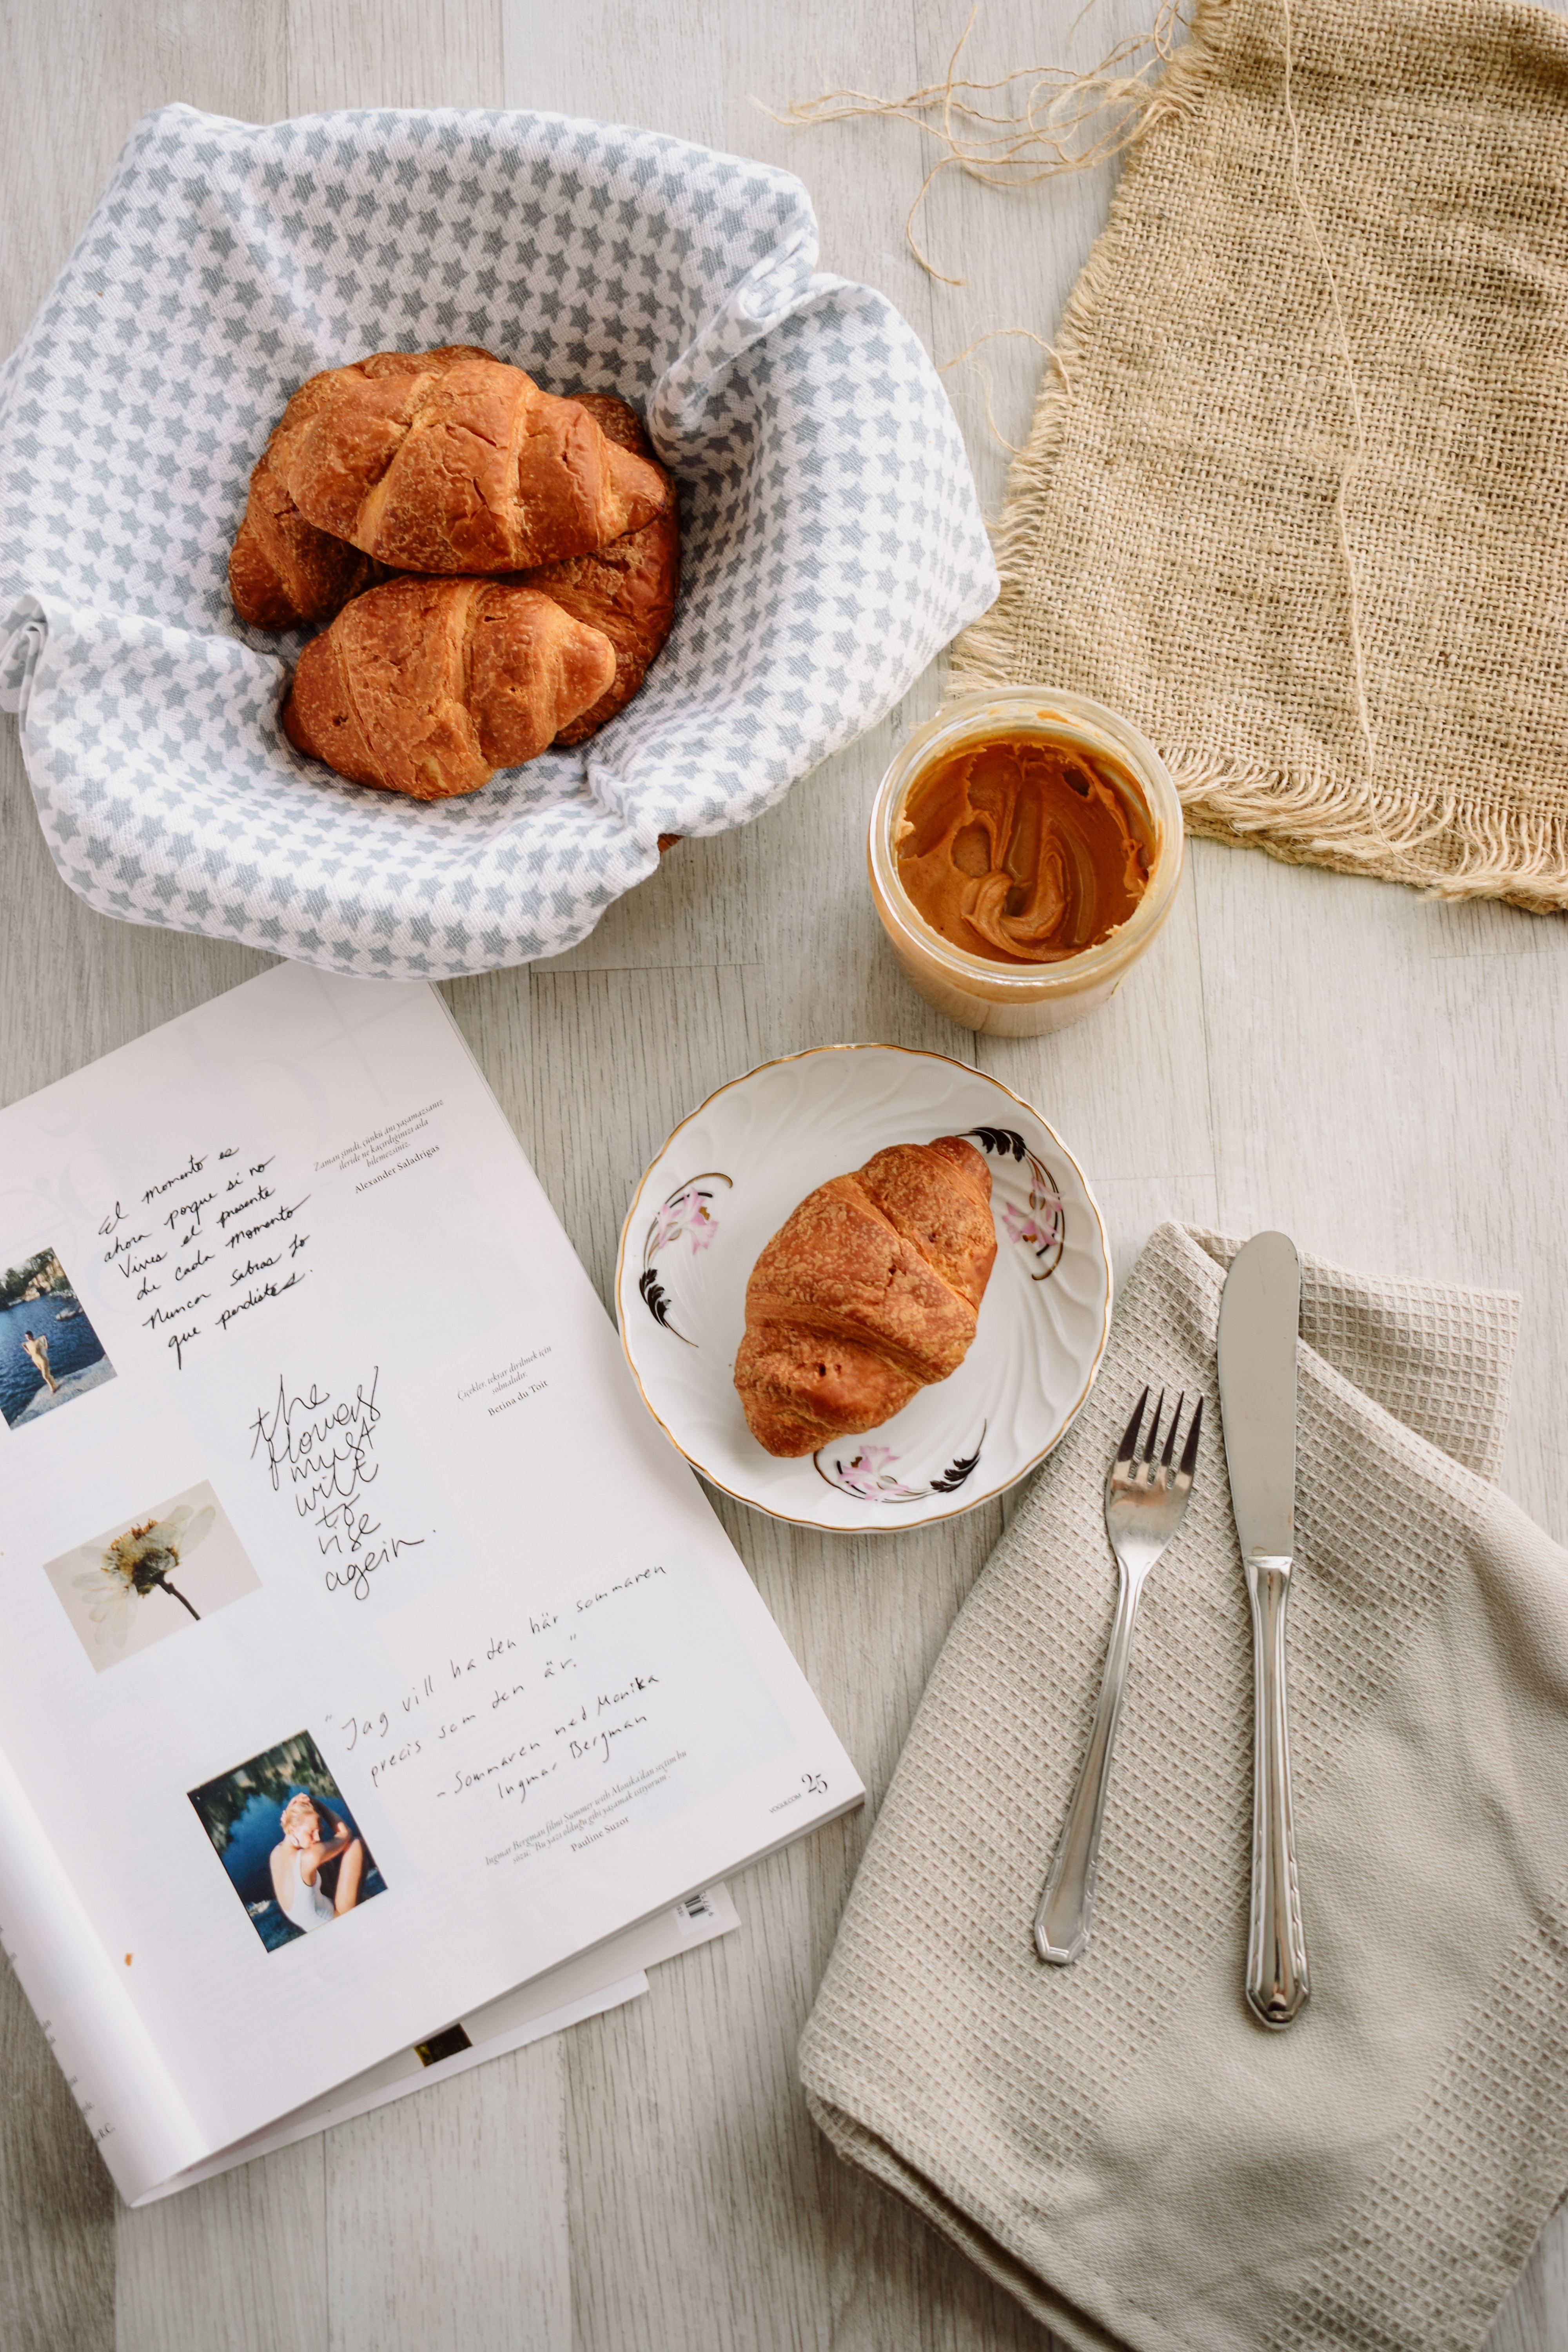 El momento es
ahora porque si no
Vives el presente
de cada momento
Nunca sabras lo
que perdistes.
Zaman şimdi, çünkü anı yaşamazsanız
ileride ne kaçırdığınızı asla
bilemezsiniz.
Alexander Saladrigas
the
flowers
must
wilt
to
rise
again.
Çiçekler, tekrar dirilmek için
solmalıdır.
Betina du Toit
"Jag vill ha den här sommaren
precis som den är."
- Sommaren med Monika
Ingmar Bergman
Ingmar Bergman filmi Summer with Monika'dan seçtim bu
sözü. Bu yazı olduğu gibi yaşamak istiyorum
Pauline Suzor
VOGUE.COM 25